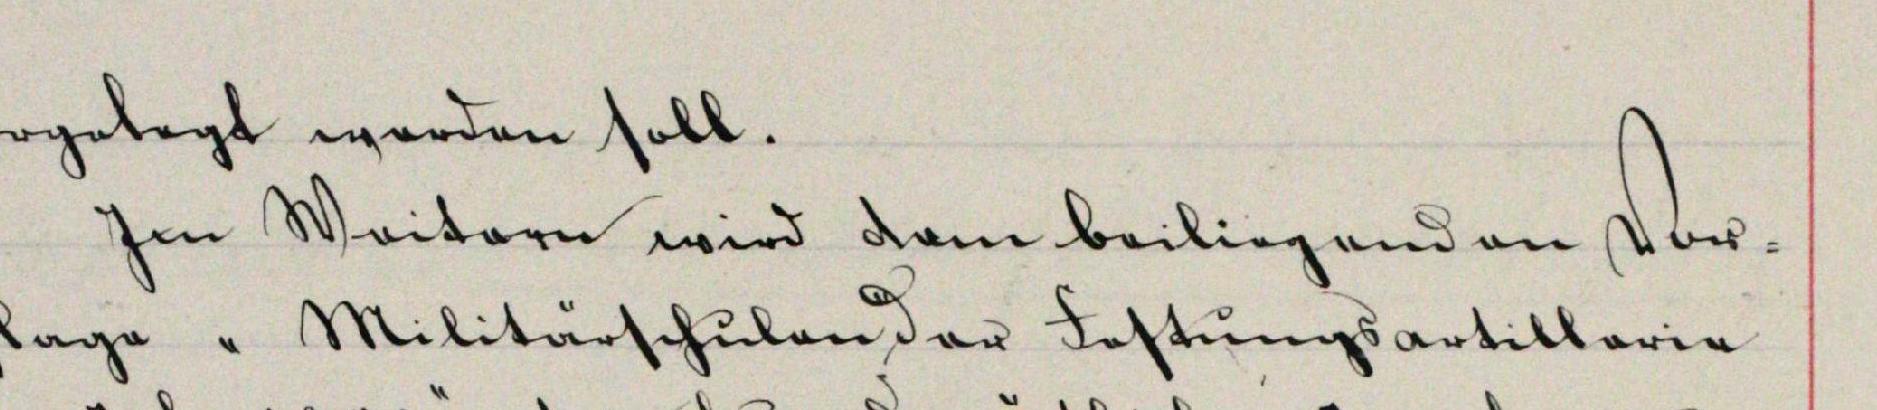 rgelegt werden soll.
Im Weitern wird dem beiliegenden Vor=
lage „ Militärschulen der Festungsartillerie